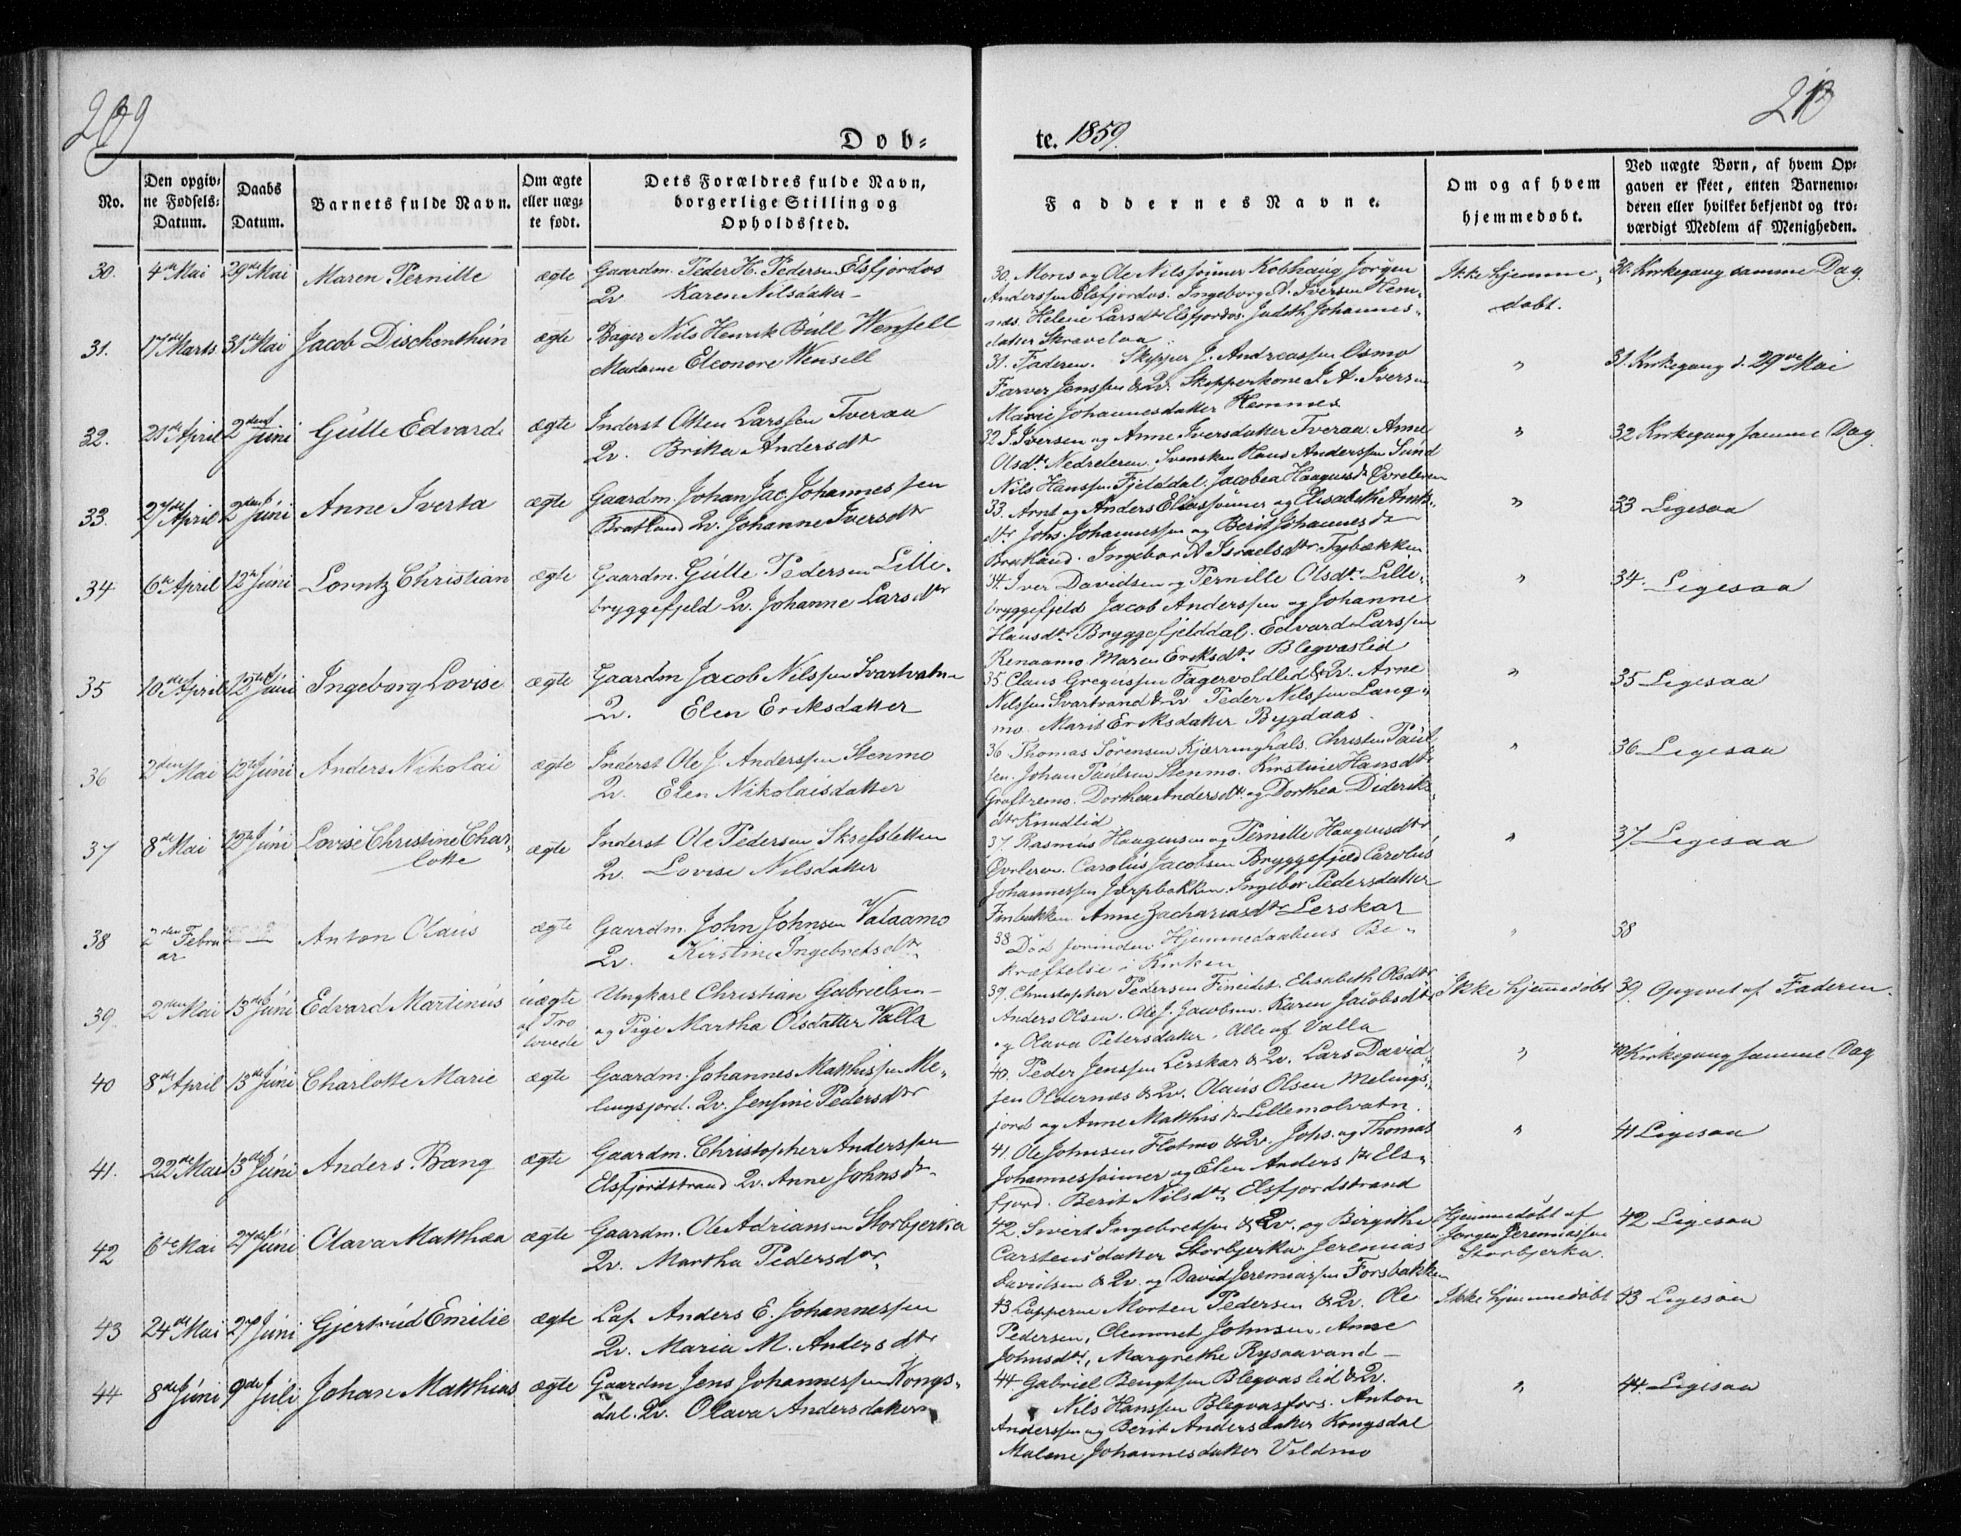 209
210
Døb-
te. 1859.
No.
Den opgiv-
ne Fødsels-
Datum.
Daabs
Datum.
Barnets fulde Navn.
Om ægte
eller uæg-
te født.
Dets Forældres fulde Navn,
borgerlige Stilling og
Opholdssted.
Faddernes Navne.
Om og af hvem
hjemmedøbt.
Ved uægte Børn, af hvem Op-
gaven er skeet, enten Barnemo-
deren eller hvilket bekjendt og tro-
værdigt Medlem af Menigheden.
30. 4de Mai 29de Mai Maren Pernille ægte Gaardm. Peder H. Pedersen Elsfjordos
Qv. Karen Nilsdatter
30. Mons og Ole Nilssønner Kobhaug Jørgen
Anderssen Elsfjordos. Ingeborg A. Iversen Hem-
næs. Helene Larsdtr Elsfjordos. Judith Johannes-
datter Skravelaa
Ikke hjemme-
døbt.
30. Kirkegang samme Dag.
31. 17de Marts 31te Mai Jacob Dischenthun ægte Bager Nils Henrik Bull Wensell
Madame Eleonore Wensell
31. Faderen. Skipper J. Andreassen Osmo
Farver Jenssen & Qv. Skipperkone J. A. Iversen
Marie Johannesdatter Hemnes
"
31. Kirkegang d. 29de Mai
32. 21de April 2den Juni Gulle Edvard ægte Inderst Otten Larssen Tveraa
Qv. Brika Andersdtr
32. J. Iversen og Anne Iversdatter Tveraa. Anne
Olsdtr Nedreleren. Svensken Hans Anderssen Sund
Nils Hanssen Fjelddal. Jacobea Haagensdtr Øvreleren
"
32 Kirkegang samme Dag.
33. 27de April 2den Juni Anne Iverta ægte Gaardm. Johan Jac. Johannessen
Bratland Qv. Johanne Iversdtr
33. Arnt og Anders Eliassønner og Elisabeth Arnts-
dtr Johs. Johannessen og Berit Johannesdtr
Bratland. Ingebor A Israelsdtr Tybækken
"
33 Ligesaa
34 6te April 12te Juni Lorntz Christian ægte Gaardm. Gulle Pedersen Lille-
bryggefjeld Qv. Johanne Larsdtr
34. Iver Davidsen og Pernille Olsdtr Lille-
bryggefjeld Jacob Anderssen og Johanne
Hansdtr Bryggefjelddal. Edvard Larssen
Renaamo Maren Eriksdtr Blegvaslid
"
34. Ligesaa
35 10de April 12te Juni Ingeborg Lovise ægte Gaardm Jacob Nilssen Svartvatn
Qv. Elen Eriksdatter
35 Claus Gregussen Fagervoldlid & Qv. Arne
Nilssen Svartvand & Qv Peder Nilssen Lang-
mo. Marit Eriksdatter Bygdaas.
"
35 Ligesaa
36 2den Mai 12te Juni Anders Nikolai ægte Inderst Ole J. Anderssen Stenmo
Qv. Elen Nikolaisdatter
36 Thomas Sørensen Kjærringhals. Christen Paul-
sen. Johan Paulsen Stenmo. Kirstine Hansdtr
Graftremo. Dorthea Andersdtr og Dorthea Dideriks-
dtr Knudlid
"
36 Ligesaa
37 8de Mai 12te Juni Lovise Christine Char-
lotte ægte Inderst Ole Pedersen Skrefsletten
Qv. Lovise Nilsdatter
37. Rasmus Haagensen og Pernille Haagensdtr
Øvrleren. Carolus Jacobsen Bryggefjeld Carolus
Johannessen Jærpbakken Ingebor Pedersdatter
Finbakken Anne Zachariasdtr Lerskar
"
37 Ligesaa
38 2den Febru-
ar — Anton Olaus ægte Gaardm. John Johnsen Valaamo
Qv. Kirstine Ingebretsdtr
38 Død forinden Hjemmedaabens Be-
kræftelse i Kirken
"
38
39. 2den Mai 13de Juni Edvard Martinus uægte
af Tro-
lovede Ungkarl Christian Gabrielsen
og Pige Martha Olsdatter Valla
39. Christopher Pedersen Fineidet. Elisabeth Olsdtr
Anders Olsen. Ole J. Jacobsen. Karen Jacobsdtr
og Olava Petersdatter. Alle af Valla
Ikke hjemmedøbt
39. Opgivet af Faderen.
40 8de April 13de Juni Charlotte Marie ægte Gaardm. Johannes Matthissen Me-
lingsjord. Qv. Jensine Pedersdtr
40. Peder Jenssen Lerskar & Qv. Lars David-
sen Oldernæs & Qv. Olaus Olsen Melings-
jord og Anne Matthisdtr Lillemolvatn.
"
40 Kirkegang samme Dag
41. 22de Mai 13de Juni Anders Bang ægte Gaardm. Christopher Anderssen
Elsfjordstrand Qv. Anne Johnsdtr
41 Ole Johnsen Flotmo & Qv. Johs. og Thomas
Johannessønner og Elen Andersdtr Els-
fjord. Berit Nilsdtr Elsfjordstrand
"
41 Ligesaa
42 6te Mai 27de Juni Olava Matthea ægte Gaardm. Ole Adriansen Storbjerka
Qv. Martha Pedersdtr
42. Sivert Ingebretsen & Qv. og Birgithe
Carstensdatter Storbjerka Jeremias
Davidsen & Qv. og David Jeremiassen Forsbakken
Hjemmedøbt af
Jørgen Jeremiassen
Storbjerka.
42 Ligesaa
43 24de Mai 27de Juni Gjertrud Emilie ægte Lap. Anders E. Johannessen
Qv. Maria M. Andersdtr
43 Lapperne Morten Pedersen & Qv. Ole
Pedersen, Clemmet Johnsen. Anne
Johnsdtr, Margrethe Rysaavand
Ikke hjemmedøbt
43 Ligesaa
44 8de Juni 9de Juli Johan Matthias ægte Gaardm Jens Johannessen Kongs-
dal. Qv. Olava Andersdatter
44 Gabriel Bengtsen Blegvaslid & Qv.
Nils Hanssen Blegvasfors. Anton
Anderssen og Berit Andersdatter Kongsdal
Malene Johannesdatter Vildmo
"
44. Ligesaa